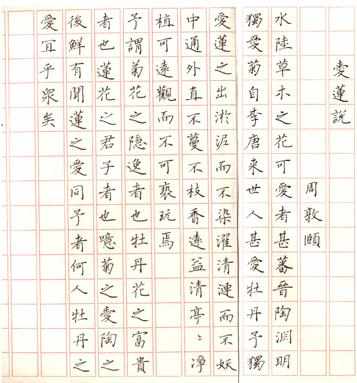 愛蓮說
周敦頤
水陸草木之花可愛者甚蕃晉陶淵明
獨愛菊自李唐來世人甚愛牡丹予獨
愛蓮之出淤泥而不染濯清漣而不妖
中通外直不蔓不枝香遠益清亭〻淨
植可遠觀而不可褻玩焉
予謂菊花之隱逸者也牡丹花之富貴
者也蓮花之君子者也噫菊之愛陶之
後鮮有聞蓮之愛同予者何人牡丹之
愛宜乎眾矣